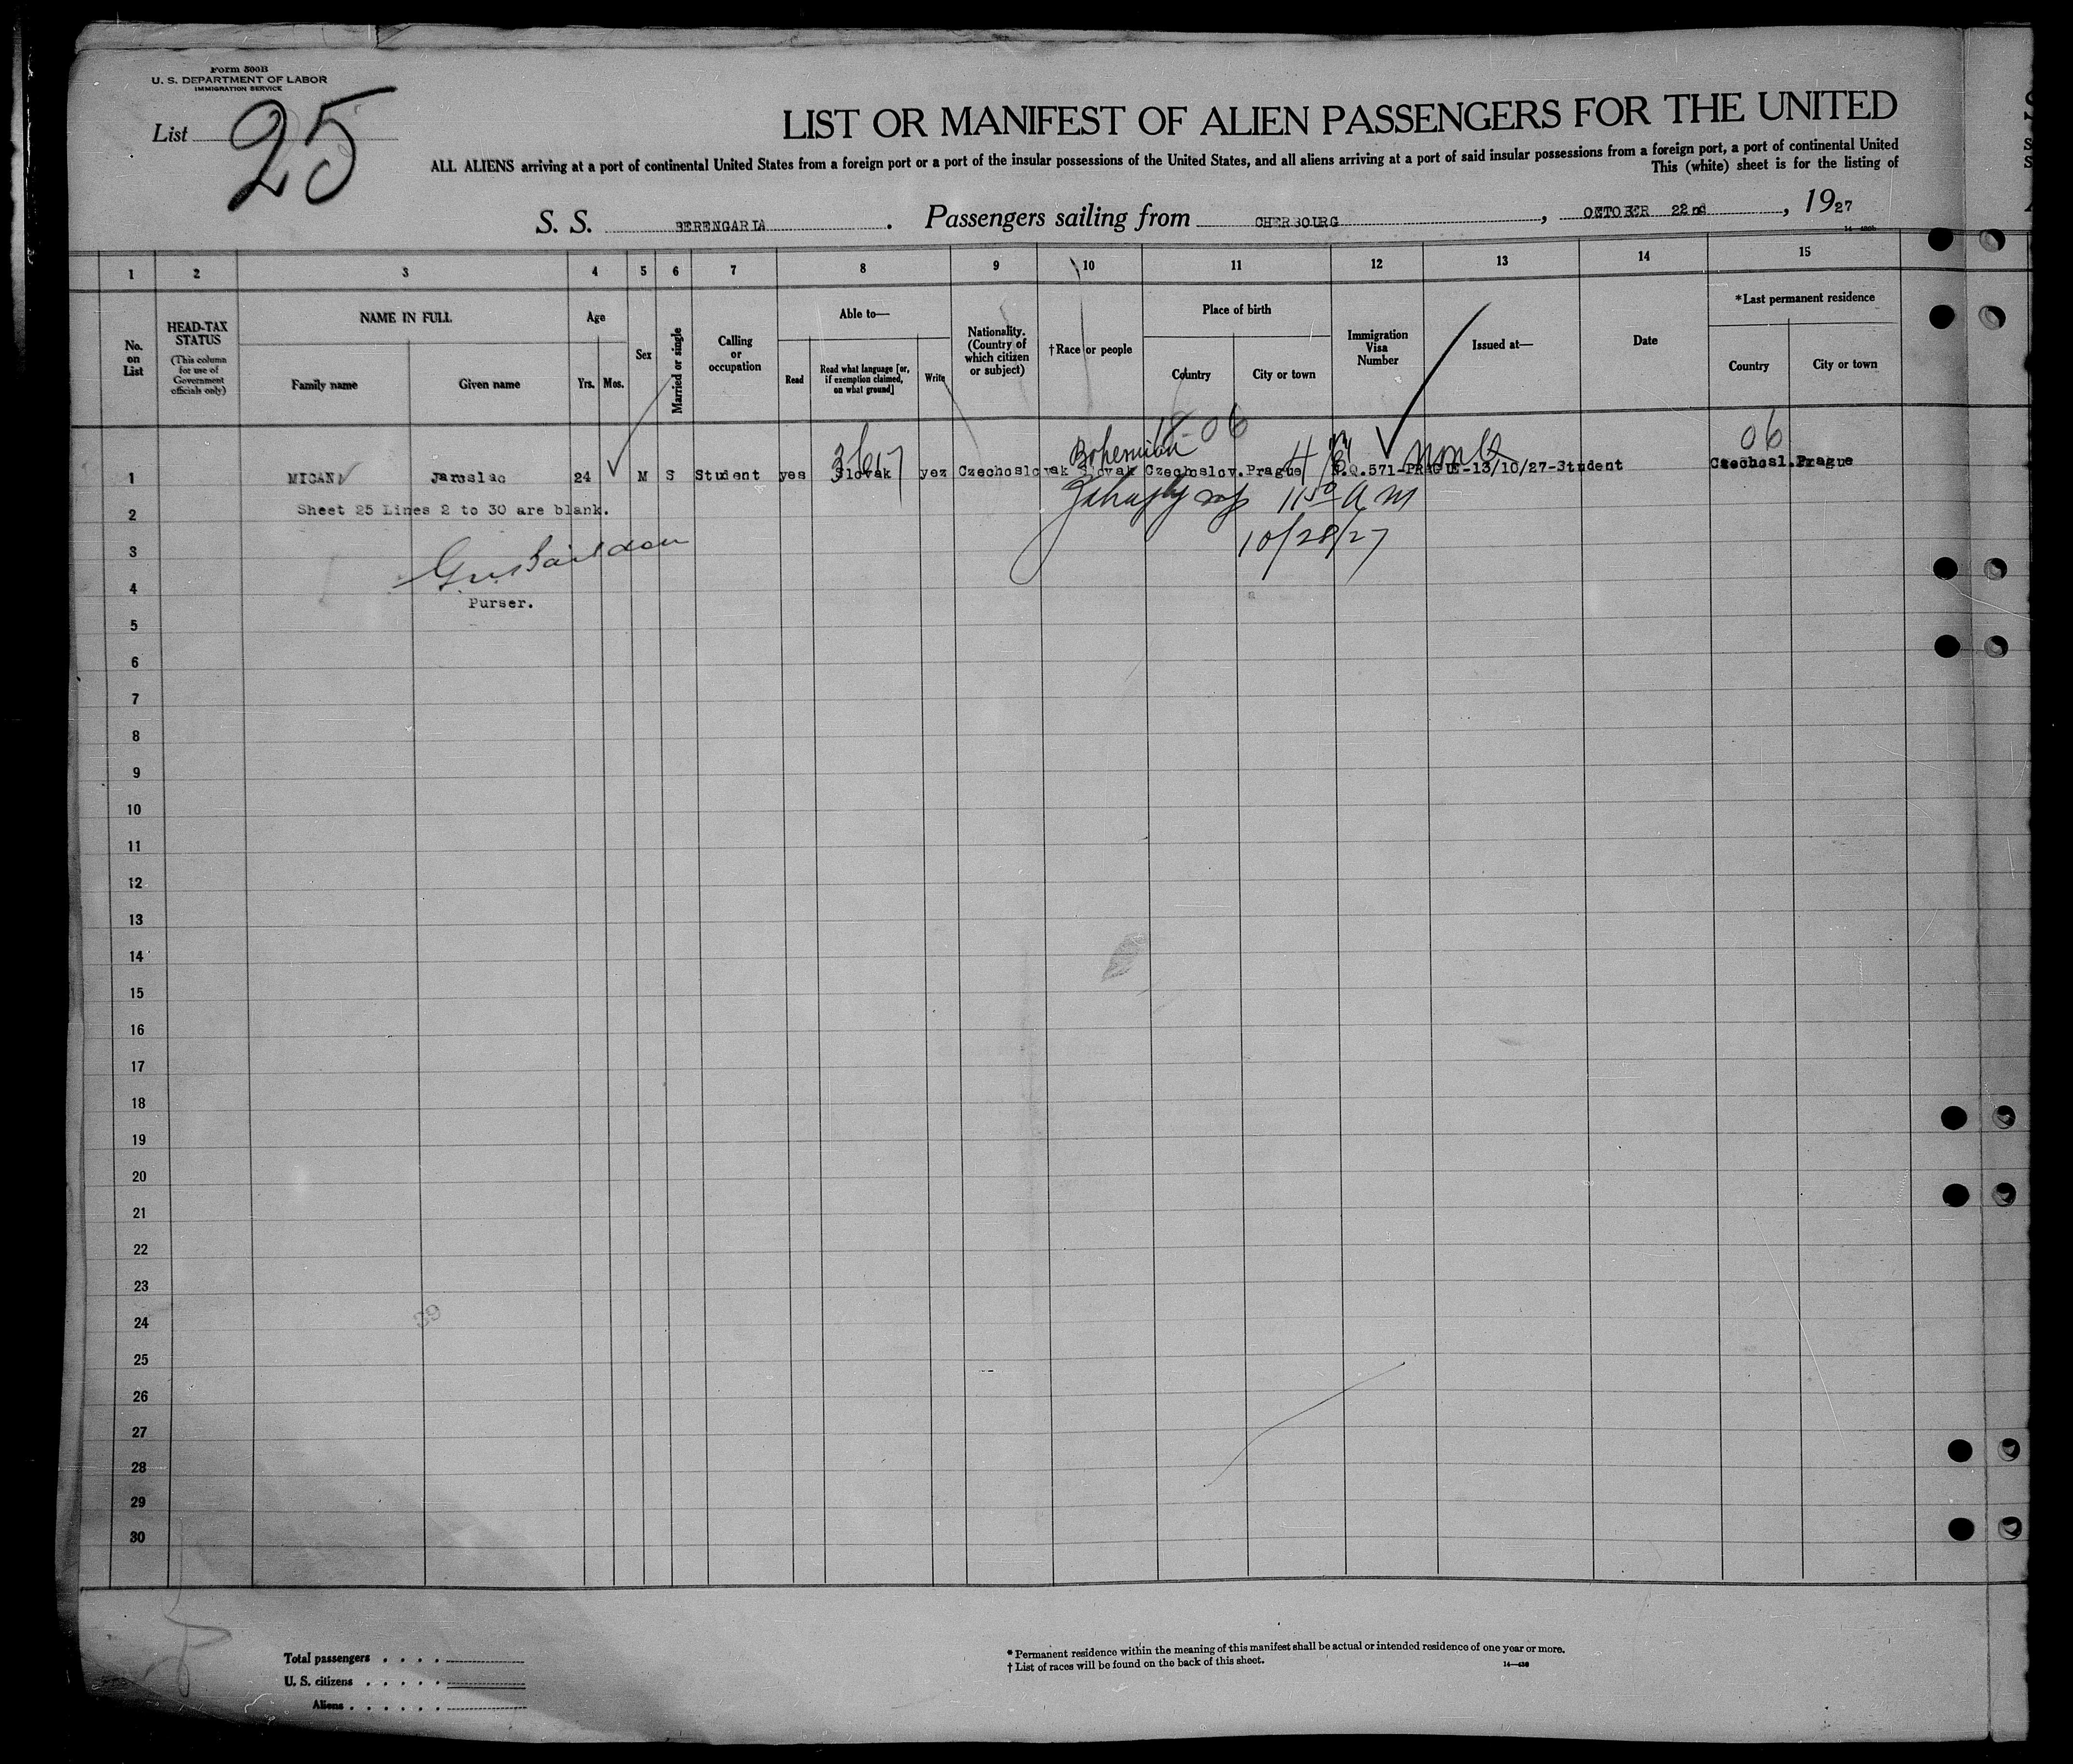 Form 500B
U. S. DEPARTMENT OF LABOR
IMMIGRATION SERVICE
List 25
LIST OR MANIFEST OF ALIEN PASSENGERS FOR THE UNITED
ALL ALIENS arriving at a port of continental United States from a foreign port or a port of the insular possessions of the United States, and all aliens arriving at a port of said insular possessions from a foreign port, a port of continental United
This (white) sheet is for the listing of
S. S. BERENGARIA . Passengers sailing from CHERBOURG , OCTOBER 22nd , 1927
1 2 3 4 5 6 7 8 9 10 11 12 13 14 15
No. on List
HEAD-TAX STATUS
(This column for use of Government officials only)
NAME IN FULL
Family name Given name
Age
Yrs. Mos.
Sex
Married or single
Calling or occupation
Able to—
Read
Read what language [or, if exemption claimed, on what ground]
Write
Nationality. (Country of which citizen or subject)
†Race or people
Place of birth
Country City or town
Immigration Visa Number
Issued at—
Date
*Last permanent residence
Country City or town
06 06
Bohemian
1 MICAN Jaroslac 24 M S Student yes Slovak yez Czechoslovak Slovak Czechoslov. Prague N.Q.571-PRAGUE-13/10/27-Student Czechosl. Prague
2 Sheet 25 Lines 2 to 30 are blank. 11 50 A M
3 10/28/27
4 Purser.
5
6
7
8
9
10
11
12
13
14
15
16
17
18
19
20
21
22
23
24
25
26
27
28
29
30
39
Total passengers . . . .
U. S. citizens . . . . .
Aliens . . . . . .
* Permanent residence within the meaning of this manifest shall be actual or intended residence of one year or more.
† List of races will be found on the back of this sheet.